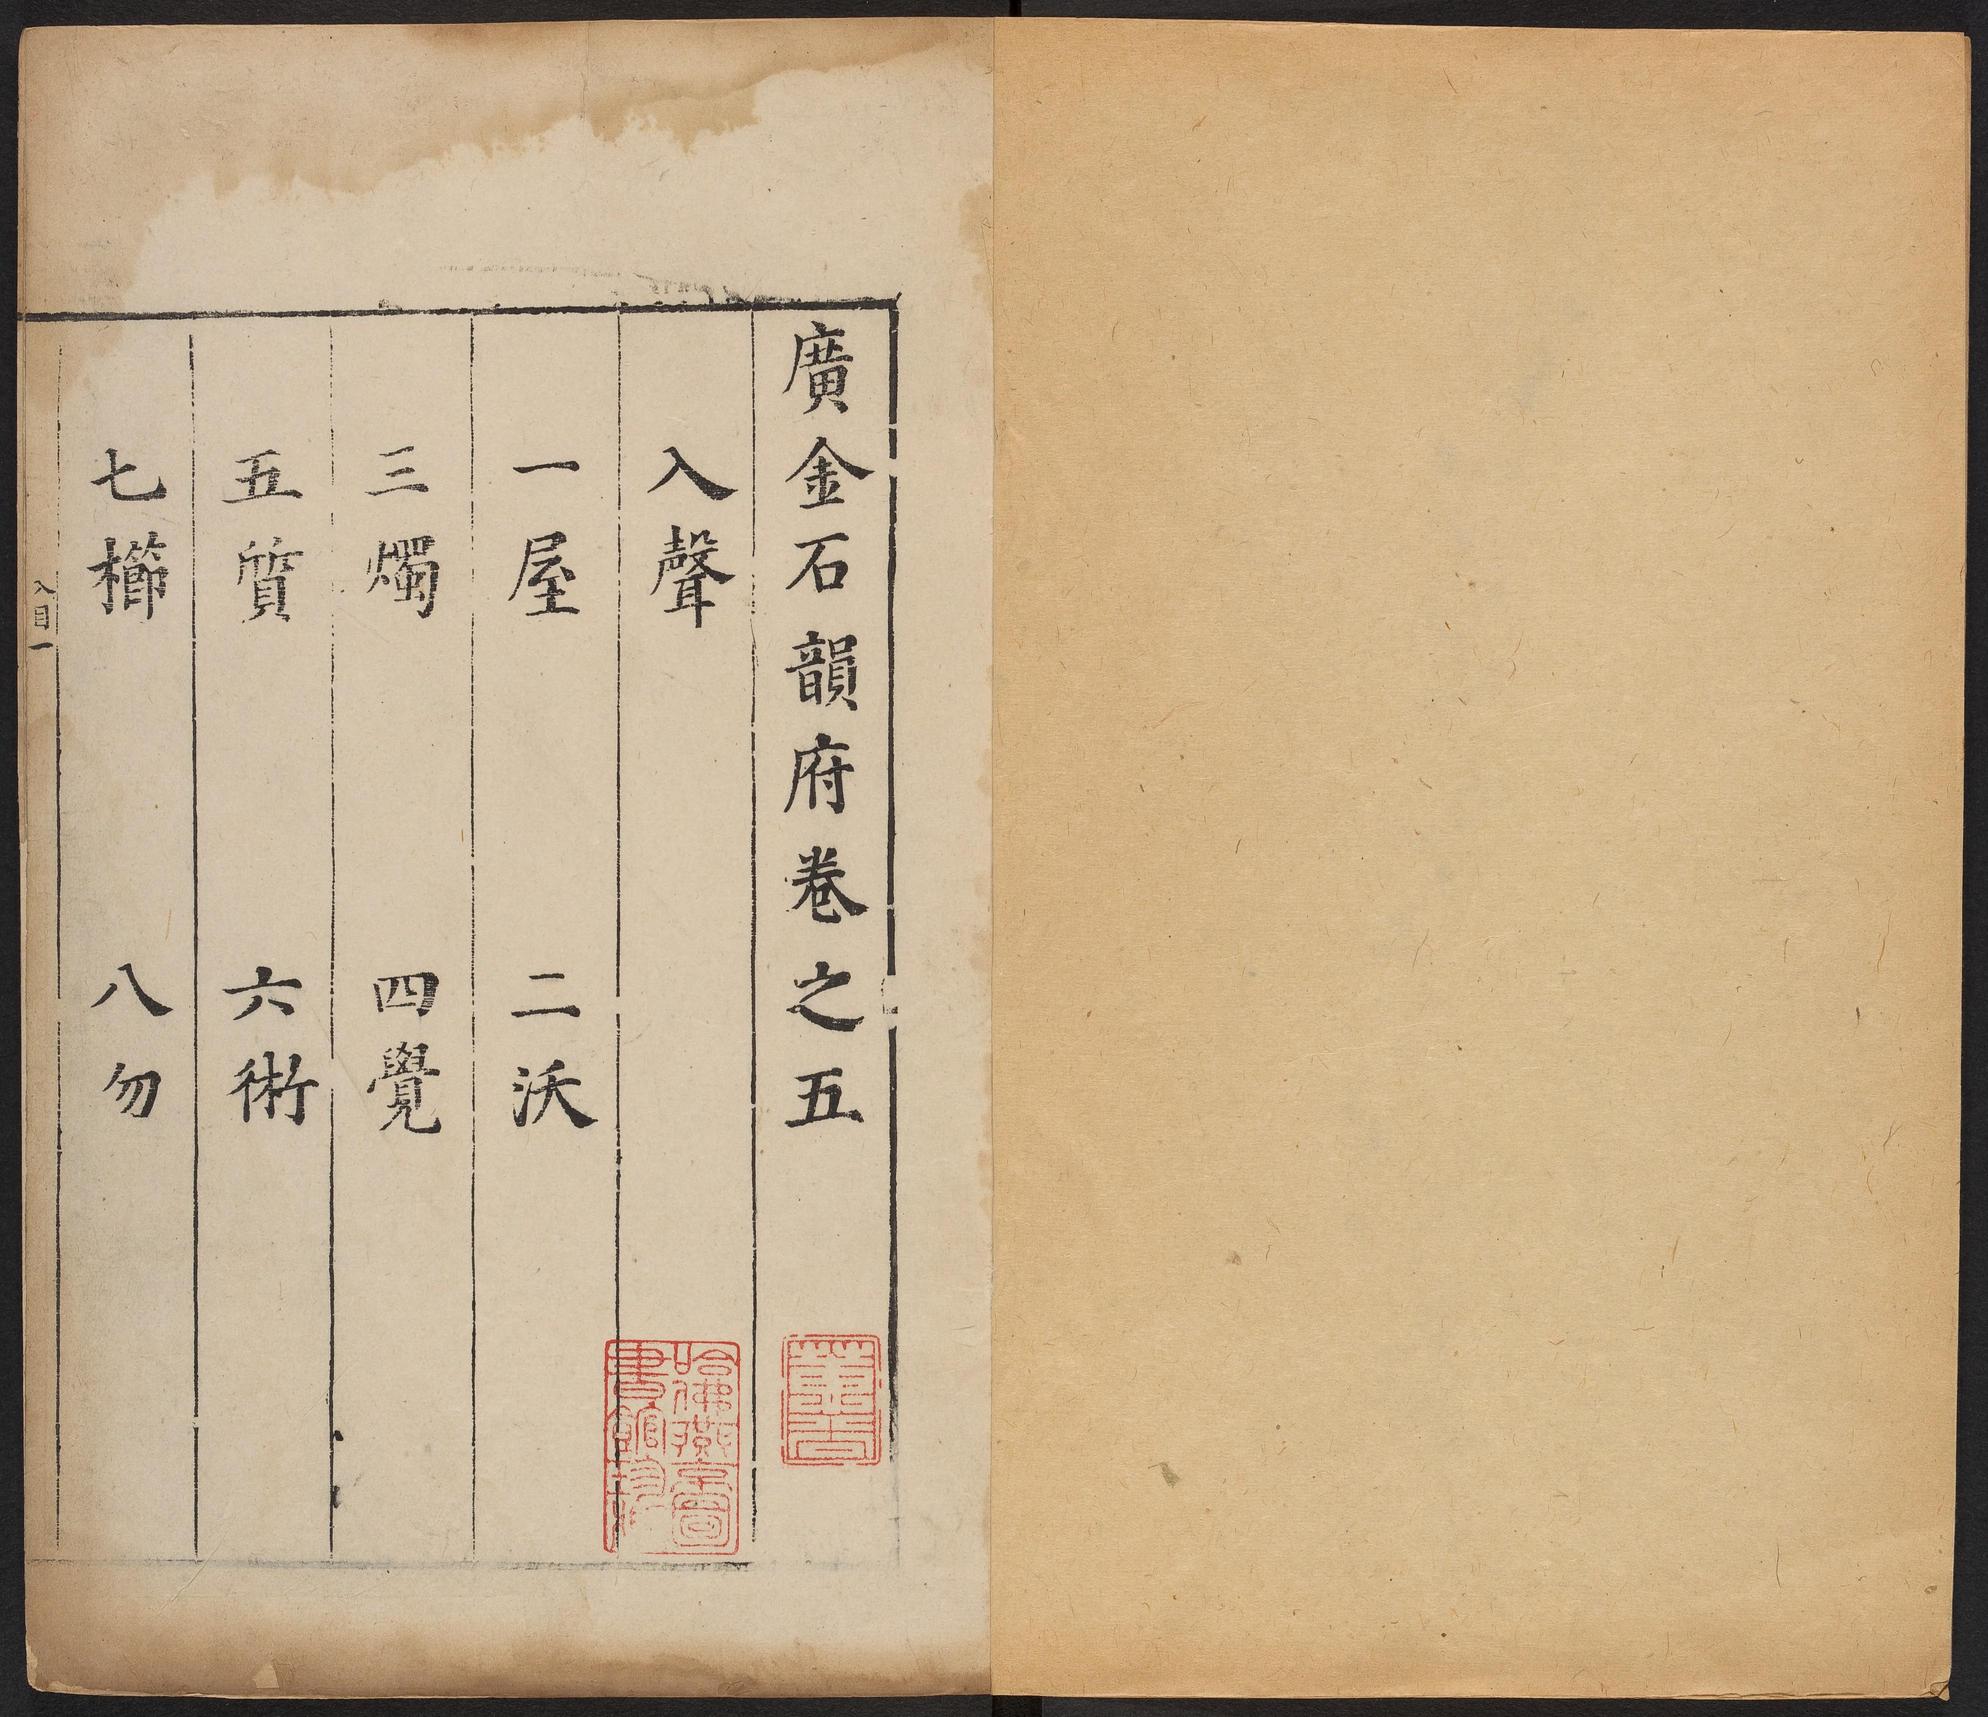 廣金石韻府卷之五
入聲
一屋 二沃
三燭 四覺
五質 六術
七櫛 八勿
入目一
哈佛燕京圖
書館珍藏